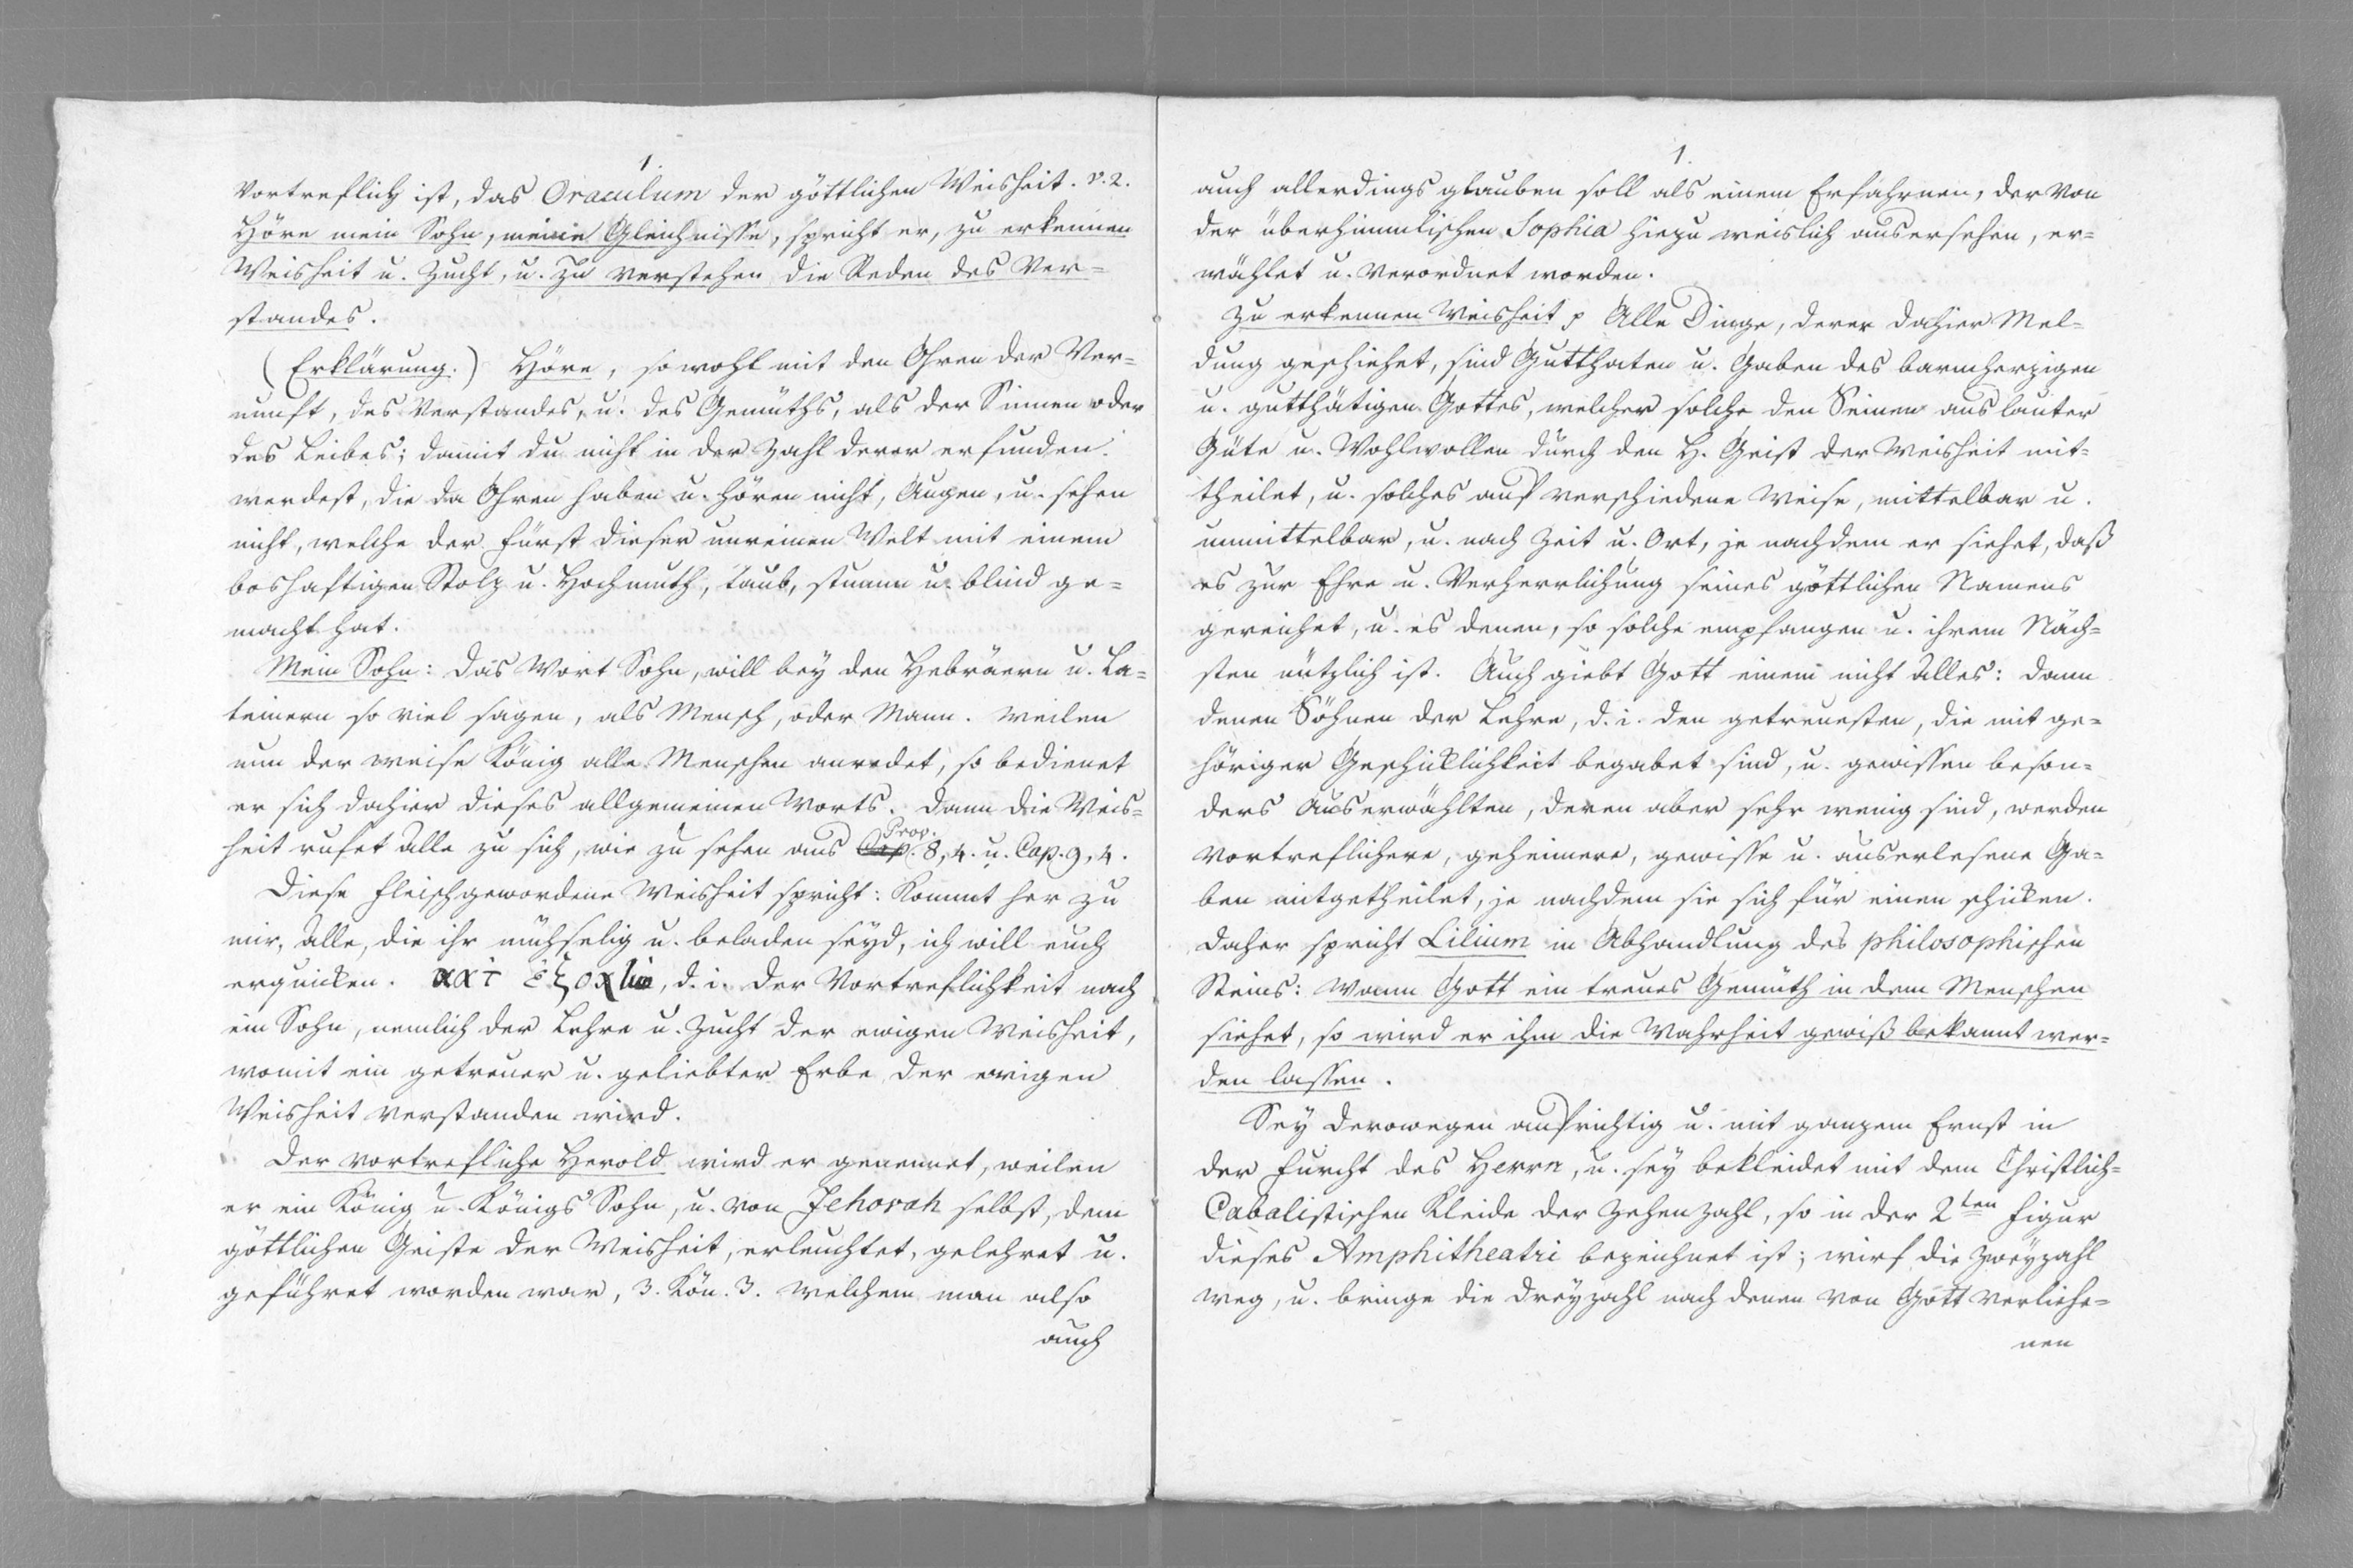 1.
Vortreflich ist, das Oraculum der göttlichen Weisheit. v. 2.
Höre mein Sohn, meine Gleichnisse, spricht er, zu erkennen
Weisheit u. Zucht, u. zu verstehen die Reden des Ver-
standes.
(Erklärung.) Höre, sowohl mit den Ohren der Ver-
nunft, des Verstandes, u. des Gemüths, als der Sinnen oder
des Leibes; damit du nicht in der Zahl derer erfunden
werdest, die da Ohren haben u. hören nicht, Augen, u. sehen
nicht, welche der Fürst dieser unreinen Welt mit einem
boshaftigen Stolz u. Hochmuth, taub, stumm u. blind ge-
macht hat.
Mein Sohn: Das Wort Sohn, will bey den Hebräern u. La-
teinern so viel sagen, als Mensch, oder Mann. Weilen
nun der weise König alle Menschen anredet, so bedienet
er sich dahier dieses allgemeinen Worts. Dann die Weis-
heit rufet alle zu sich, wie zu sehen aus Prov. 8, 4. u. Cap. 9, 4.
Diese fleischgewordene Weisheit spricht: Kommt her zu
mir, alle, die ihr mühselig u. beladen seyd, ich will euch
erquicken. d. i. der Vortreflichkeit nach
ein Sohn, nemlich der Lehre u. Zucht der ewigen Weisheit,
womit ein getreuer u. geliebter Erbe der ewigen
Weisheit verstanden wird.
Der vortrefliche Herold wird er genennet, weilen
er ein König u. Königs Sohn, u. von Jehovah selbst, dem
göttlichen Geiste der Weisheit, erleuchtet, gelehret u.
geführet worden war, 3. Kön. 3. welchem man also
auch
1.
auch allerdings glauben soll als einem Erfahrnen, der von
der überhimmlischen Sophia hiezu weislich ausersehen, er-
wählet u. verordnet worden.
Zu erkennen Weisheit p Alle Dinge, derer dahier Mel-
dung geschiehet, sind Gutthaten u. Gaben des barmherzigen
u. gutthätigen Gottes, welcher solche den Seinen aus lauter
Güte u. Wohlwollen durch den H. Geist der Weisheit mit-
theilet, u. solches auf verschiedene Weise, mittelbar u.
unmittelbar, u. nach Zeit u. Ort, je nachdem er siehet, daß
es zur Ehre u. Verherrlichung seines göttlichen Namens
gereichet, u. es denen, so solche empfangen u. ihrem Näch-
sten nützlich ist. Auch giebt Gott einem nicht alles: dann
denen Söhnen der Lehre, d. i. den getreuesten, die mit ge-
höriger Geschicklichkeit begabet sind, u. gewissen beson-
ders Auserwählten, deren aber sehr wenig sind, werden
vortreflichere, geheimere, gewisse u. auserlesene Ga-
ben mitgetheilet, je nachdem sie sich für einen schicken.
Daher spricht Lilium in Abhandlung des philosophischen
Steins: Wann Gott ein treues Gemüth in dem Menschen
siehet, so wird er ihm die Wahrheit gewiß bekannt wer-
den lassen.
Sey derowegen aufrichtig u. mit ganzem Ernst in
der Furcht des Herrn, u. sey bekleidet mit dem Christlich-
Cabalistischen Kleide der Zehenzahl, so in der 2ten Figur
dieses Amphitheatri bezeichnet ist; wirf die Zweyzahl
weg, u. bringe die Dreyzahl nach denen von Gott verliehe-
nen